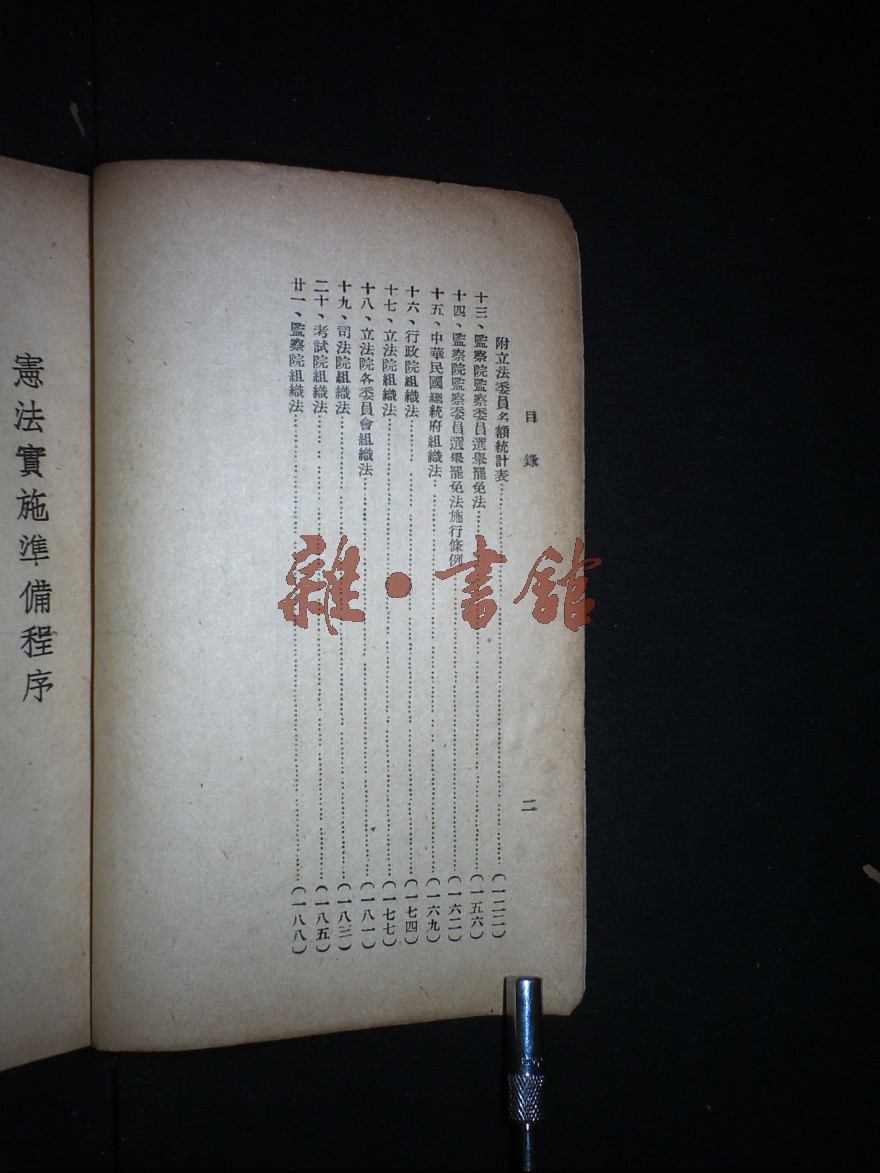 目錄 二
附立法委員名額統計表……(一二二)
十三、監察院監察委員選舉罷免法……(一五六)
十四、監察院監察委員選舉罷免法施行條例……(一六二)
十五、中華民國總統府組織法……(一六九)
十六、行政院組織法……(一七四)
十七、立法院組織法……(一七七)
十八、立法院各委員會組織法……(一八一)
十九、司法院組織法……(一八三)
二十、考試院組織法……(一八五)
廿一、監察院組織法……(一八八)
憲法實施準備程序
雜·書館